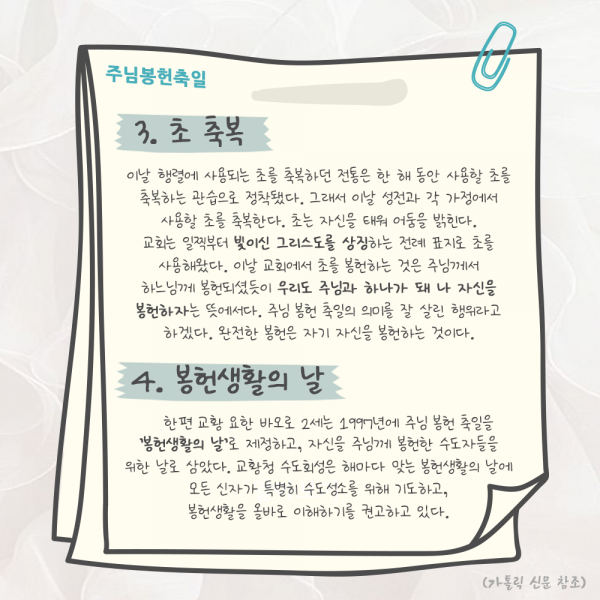 주님봉헌축일
3. 초 축복
이날 행렬에 사용되는 초를 축복하던 전통은 한 해 동안 사용할 초를
축복하는 관습으로 정착됐다. 그래서 이날 성전과 각 가정에서
사용할 초를 축복한다. 초는 자신을 태워 어둠을 밝힌다.
교회는 일찍부터 빛이신 그리스도를 상징하는 전례 표지로 초를
사용해왔다. 이날 교회에서 초를 봉헌하는 것은 주님께서
하느님께 봉헌되셨듯이 우리도 주님과 하나가 돼 나 자신을
봉헌하자는 뜻에서다. 주님 봉헌 축일의 의미를 잘 살린 행위라고
하겠다. 완전한 봉헌은 자기 자신을 봉헌하는 것이다.
4. 봉헌생활의 날
한편 교황 요한 바오로 2세는 1997년에 주님 봉헌 축일을
'봉헌생활의 날'로 제정하고, 자신을 주님께 봉헌한 수도자들을
위한 날로 삼았다. 교황청 수도회성은 해마다 맞는 봉헌생활의 날에
모든 신자가 특별히 수도성소를 위해 기도하고,
봉헌생활을 올바로 이해하기를 권고하고 있다.
(가톨릭 신문 참조)